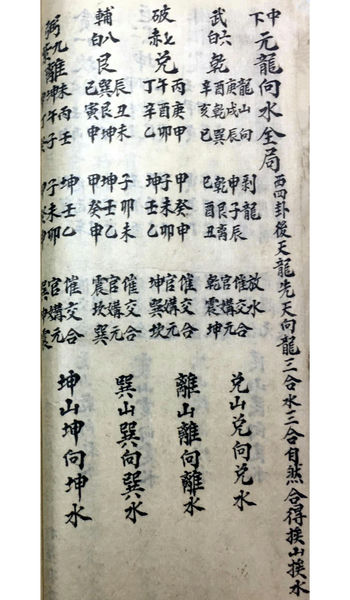 中下元龍向水全局
西四卦後天龍先天向龍三合水三合自然合得挨山挨水
武六白乾
龍山向
庚戌辰
乾巽
辛亥巳
剥龍
申子辰
乾艮
巳酉丑
放水
催交合
官媾元
乾震坤
兌山兌向兌水
破七赤兌
丙庚甲
午酉卯
丁辛乙
甲癸申
子未卯
坤壬乙
催交合
官媾元
坤巽坎
離山離向離水
輔八白艮
辰丑未
巽艮坤
巳寅申
子卯未
坤壬乙
甲癸申
催交合
官媾元
震坎巽
巽山巽向巽水
弼九紫離
未丙壬
坤午子
坤壬乙
子未卯
催交合
官媾元
巽坤震
坤山坤向坤水